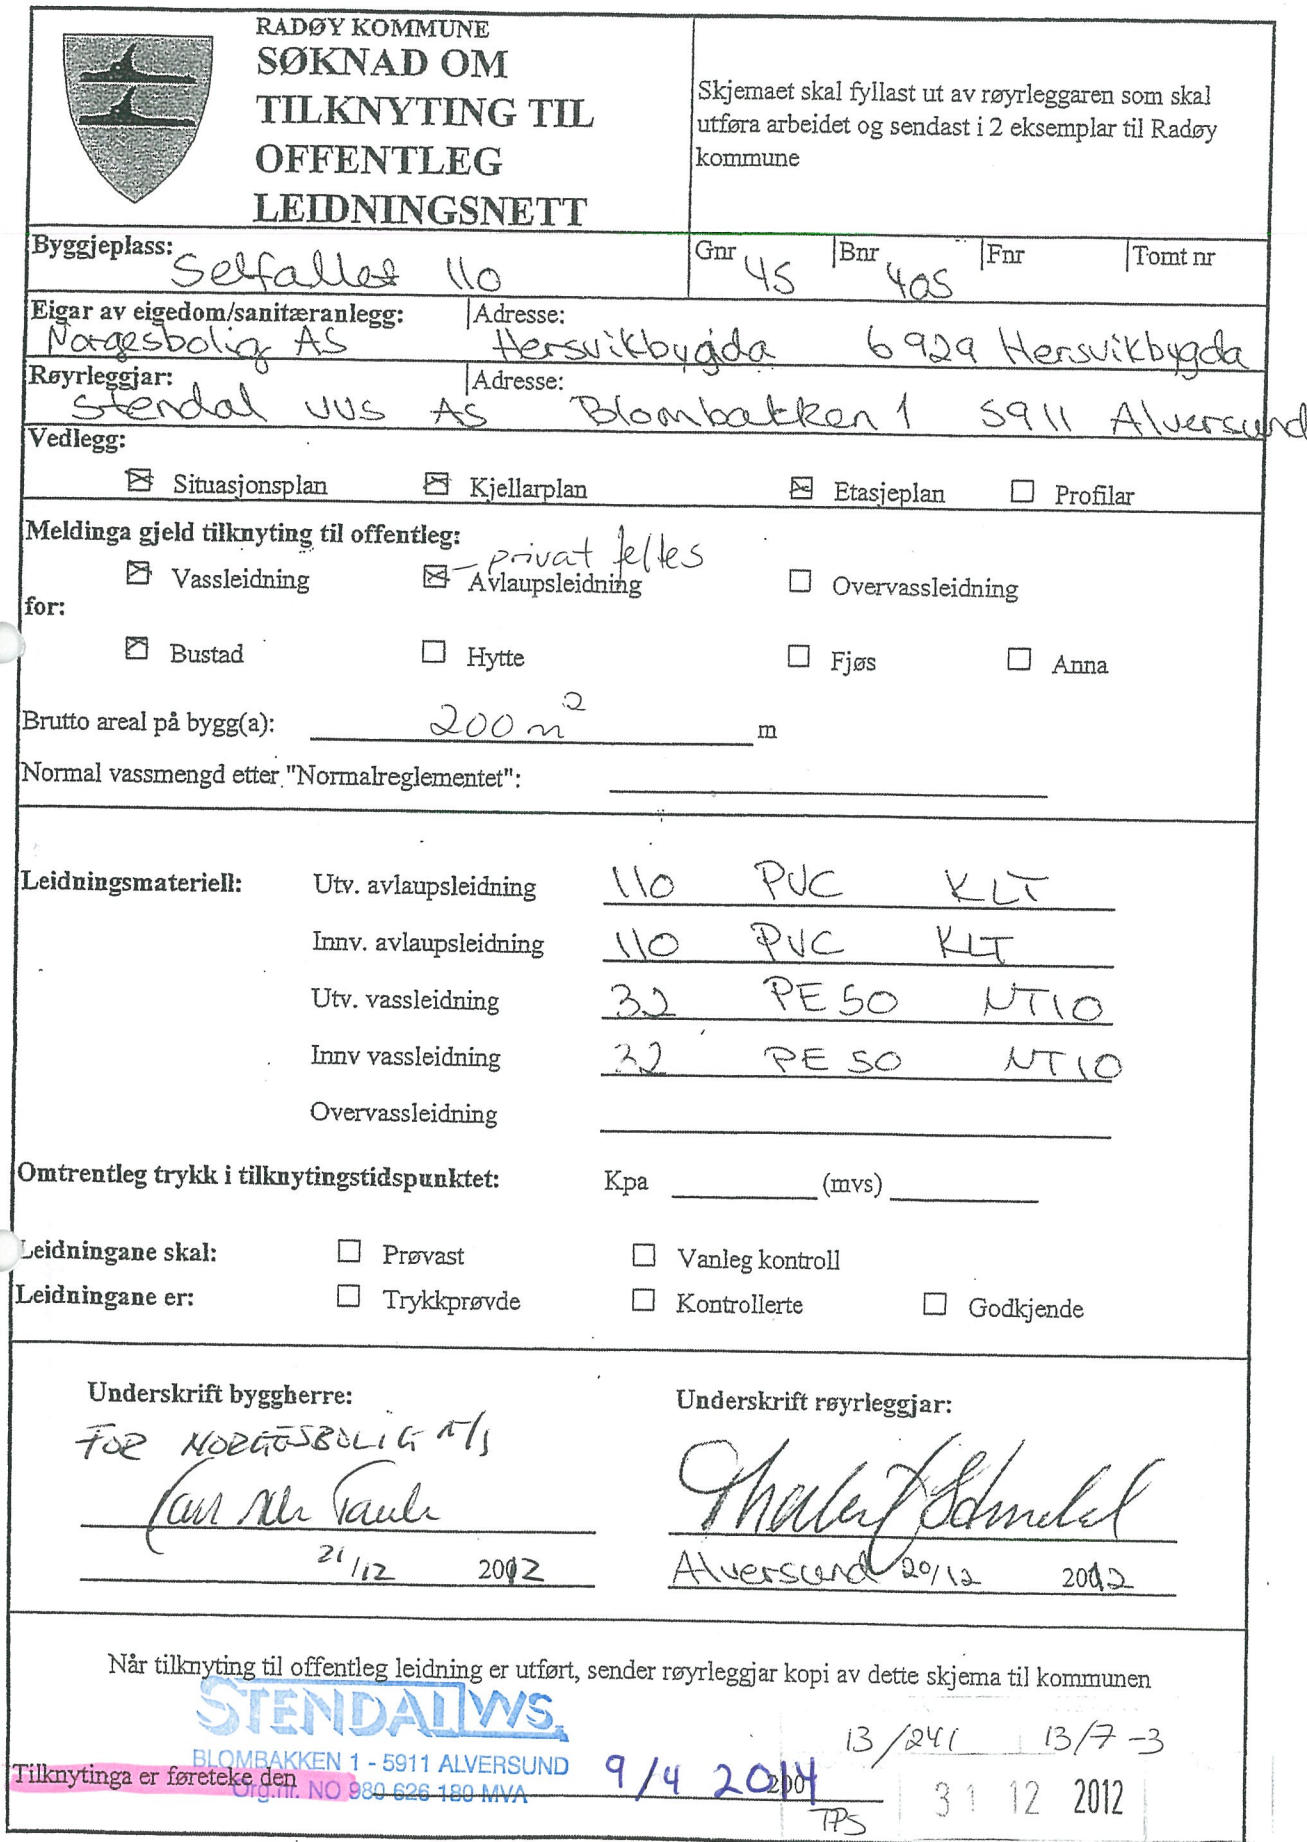 RADØY KOMMUNE
SØKNAD OM
TILKNYTING TIL
OFFENTLEG
LEIDNINGSNETT
Skjemaet skal fyllast ut av røyrleggaren som skal
utføra arbeidet og sendast i 2 eksemplar til Radøy
kommune
Byggjeplass: Selfallet 110 Gnr 45 Bnr 405 Fnr Tomt nr
Eigar av eigedom/sanitæranlegg: Adresse:
Norgesbolig AS Hersvikbygda 6929 Hersvikbygda
Røyrleggjar: Adresse:
Stendal VVS AS Blombakken 1 5911 Alversund
Vedlegg:
Situasjonsplan Kjellarplan Etasjeplan Profilar
Meldinga gjeld tilknyting til offentleg:
- privat felles
Vassleidning Avlaupsleidning Overvassleidning
for:
Bustad Hytte Fjøs Anna
Brutto areal på bygg(a): 200 m² m
Normal vassmengd etter "Normalreglementet":
Leidningsmateriell: Utv. avlaupsleidning 110 PVC KLT
Innv. avlaupsleidning 110 PVC KLT
Utv. vassleidning 32 PE 50 NT10
Innv vassleidning 32 PE 50 NT10
Overvassleidning
Omtrentleg trykk i tilknytingstidspunktet: Kpa (mvs)
Leidningane skal: Prøvast Vanleg kontroll
Leidningane er: Trykkprøvde Kontrollerte Godkjende
Underskrift byggherre: Underskrift røyrleggjar:
FOR NORGESBOLIG A/S
21/12 2012 Alversund 20/12 2012
Når tilknyting til offentleg leidning er utført, sender røyrleggjar kopi av dette skjema til kommunen
STENDAL VVS
13/241 13/7-3
BLOMBAKKEN 1 - 5911 ALVERSUND
Tilknytinga er føreteke den 9/4 2014
Org.nr. NO 980 626 180 MVA
31 12 2012
TPS